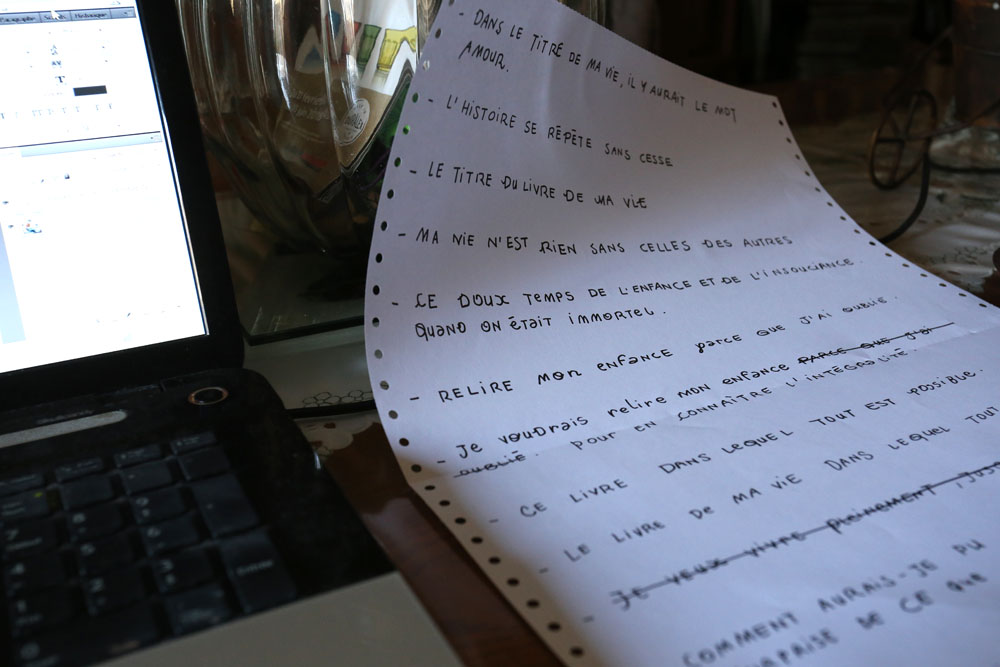 - DANS LE TITRE DE MA VIE, IL Y AURAIT LE MOT
AMOUR.
- L'HISTOIRE SE RÉPÈTE SANS CESSE
- LE TITRE DU LIVRE DE MA VIE
- MA VIE N'EST RIEN SANS CELLES DES AUTRES
- CE DOUX TEMPS DE L'ENFANCE ET DE L'INSOUCIANCE.
QUAND ON ÉTAIT IMMORTEL.
- RELIRE MON ENFANCE PARCE QUE J'AI OUBLIÉ.
- JE VOUDRAIS RELIRE MON ENFANCE PARCE QUE J'AI
OUBLIÉ. POUR EN CONNAÎTRE L'INTÉGRALITÉ.
- CE LIVRE DANS LEQUEL TOUT EST POSSIBLE.
- LE LIVRE DE MA VIE DANS LEQUEL TOUT
- JE VEUX VIVRE PLEINEMENT
COMMENT AURAIS-JE PU
DE CE QUE